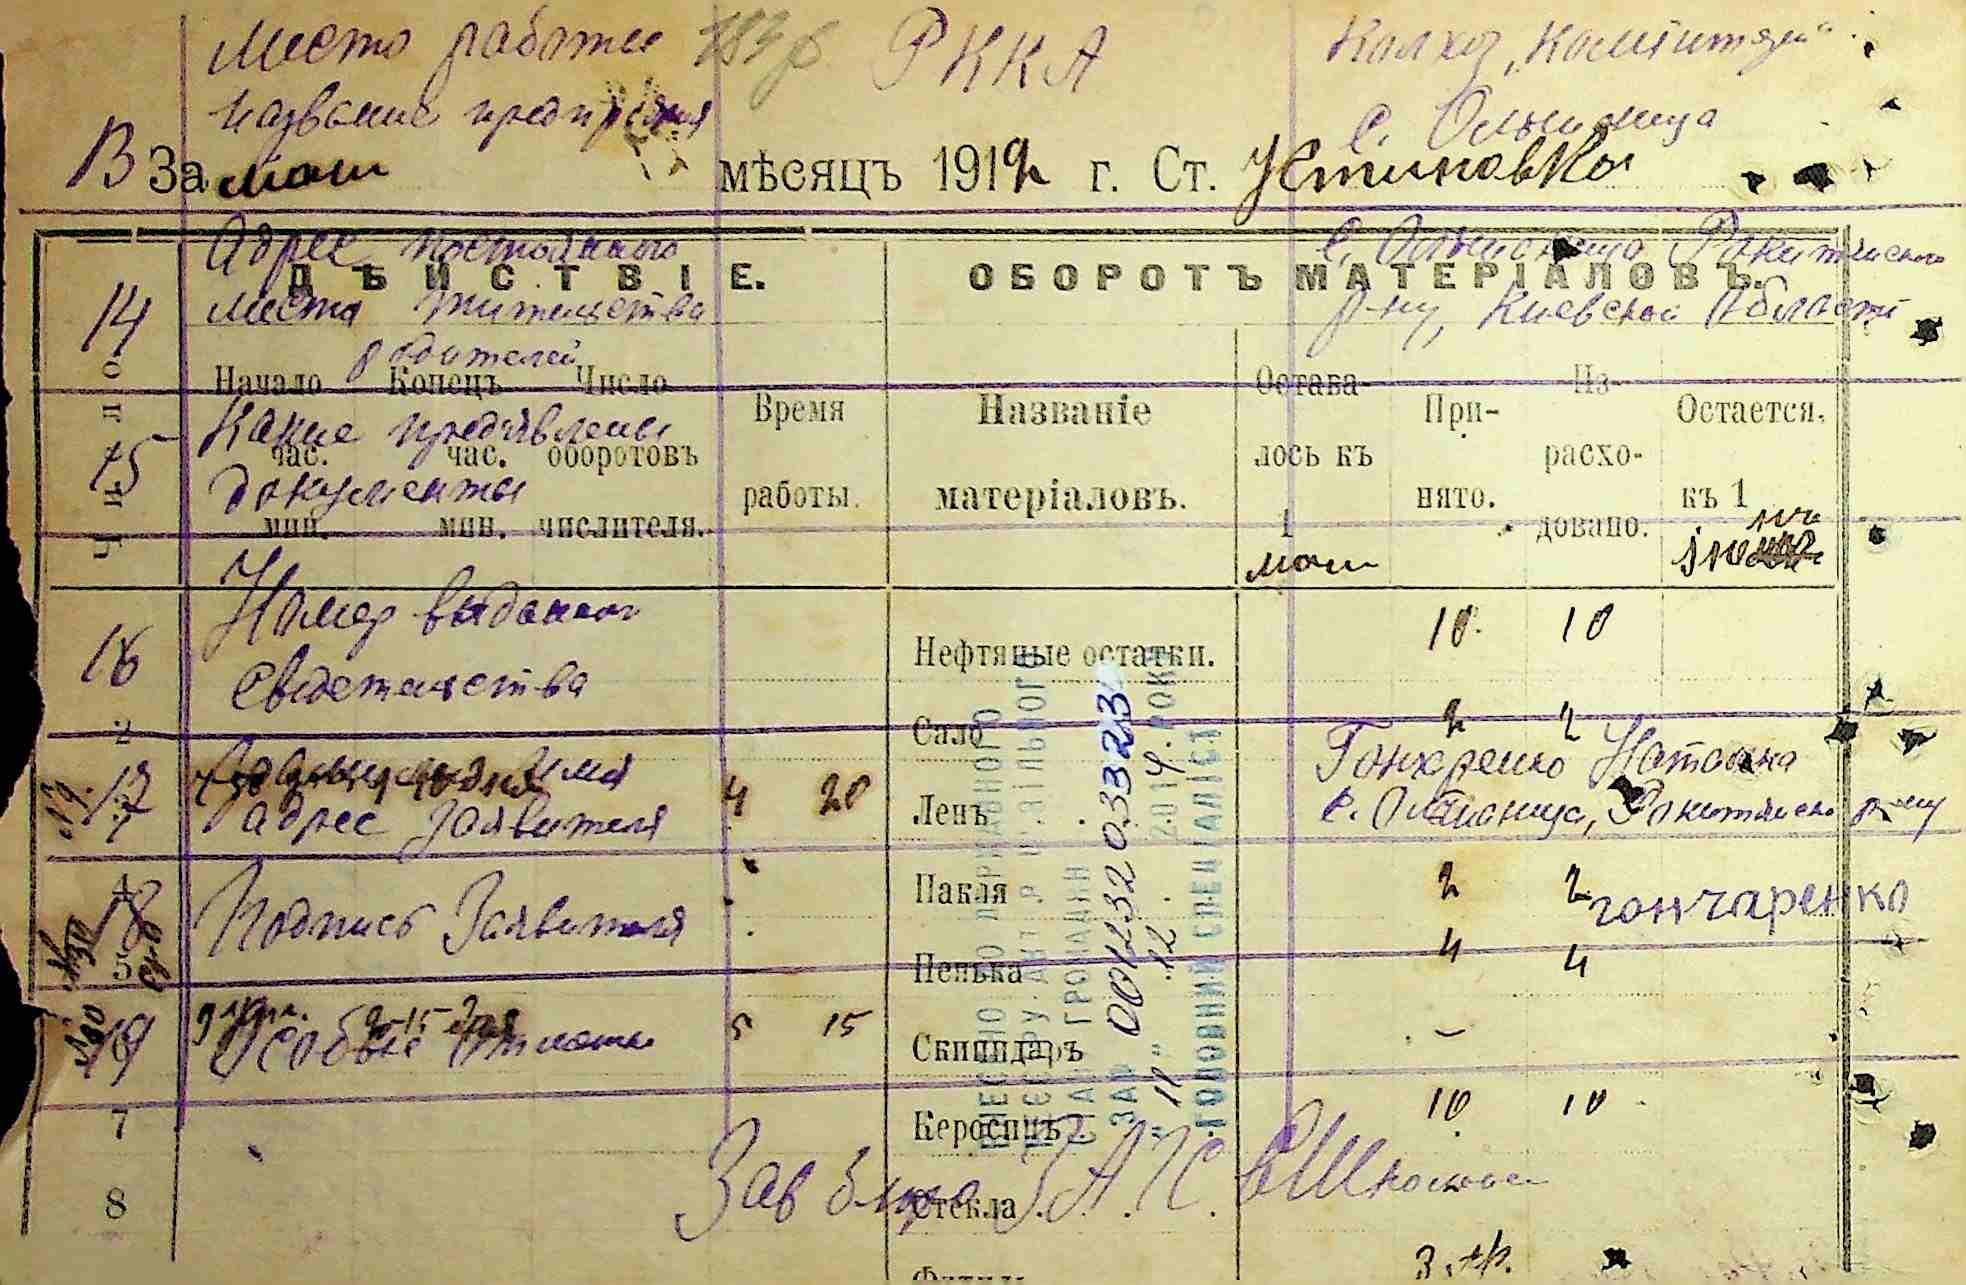 Место работы РККА Колхоз „Комінтерн"
название предприятия с. Ольшаница
В За маи мѣсяцъ 1912 г. Ст. Устиновка
Адрес постоянного с. Ольшаница Рокитянского
ДѢЙСТВІЕ. ОБОРОТЪ МАТЕРІАЛОВЪ.
14 места жительства р-ну, Киевской Области
родителей
Начало Конецъ Число Время Названіе Остава- При- Из- Остается,
15 Какие предявлены
час. час. оборотовъ лось къ расхо-
документы
мин. мин. числителя. работы. матеріаловъ. 1 нято. довано. къ 1
Числ маи июня
16 Номер выданного Нефтяные остатки. 10 10
свидетельства
2 Сало 2 2
17 Фамилия имя Гончаренко Наталка
адрес заявителя 4 20 Ленъ с. Ольшаница, Рокитянского р-ну
4 Пакля 2 2
18 Подпись Заявителя гончаренко
5 Пенька 4 4
19 Особые отметки 5 15 Скипидаръ -
6
7 Керосинъ 10 10
Зав бюро ЗАГС
8 Стекла
ВНЕСЕНО ДО ДЕРЖАВНОГО
РЕЄСТРУ АКТІВ ЦИВІЛЬНОГО
СТАНУ ГРОМАДЯН
ЗА № 00123203323
„11" 12 2014 РОКУ
ГОЛОВНИЙ СПЕЦІАЛІСТ